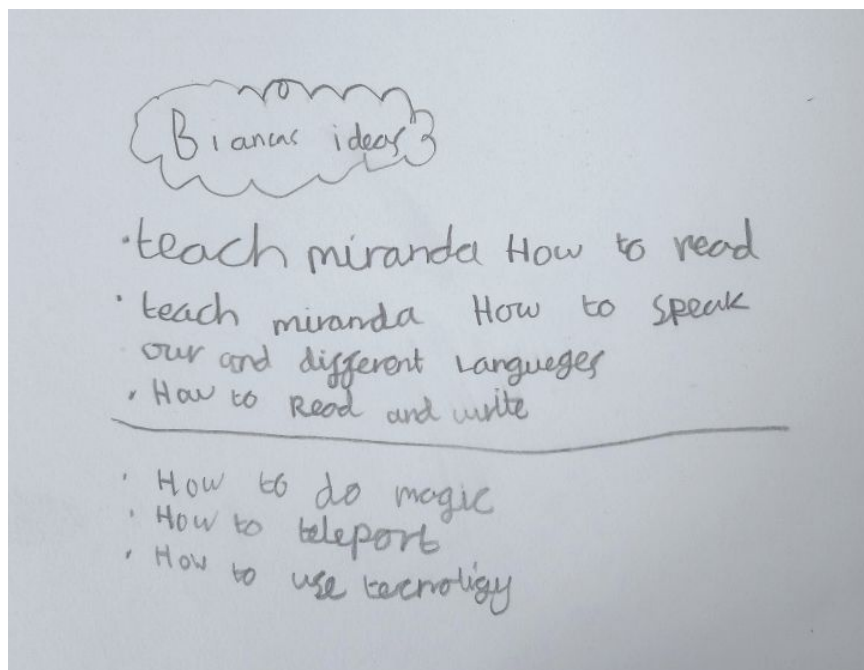 Biancas ideas
· teach miranda How to read
· teach miranda How to speak
our and different Langueges
· How to Read and write
· How to do magic
· How to teleport
· How to use tecnoligy